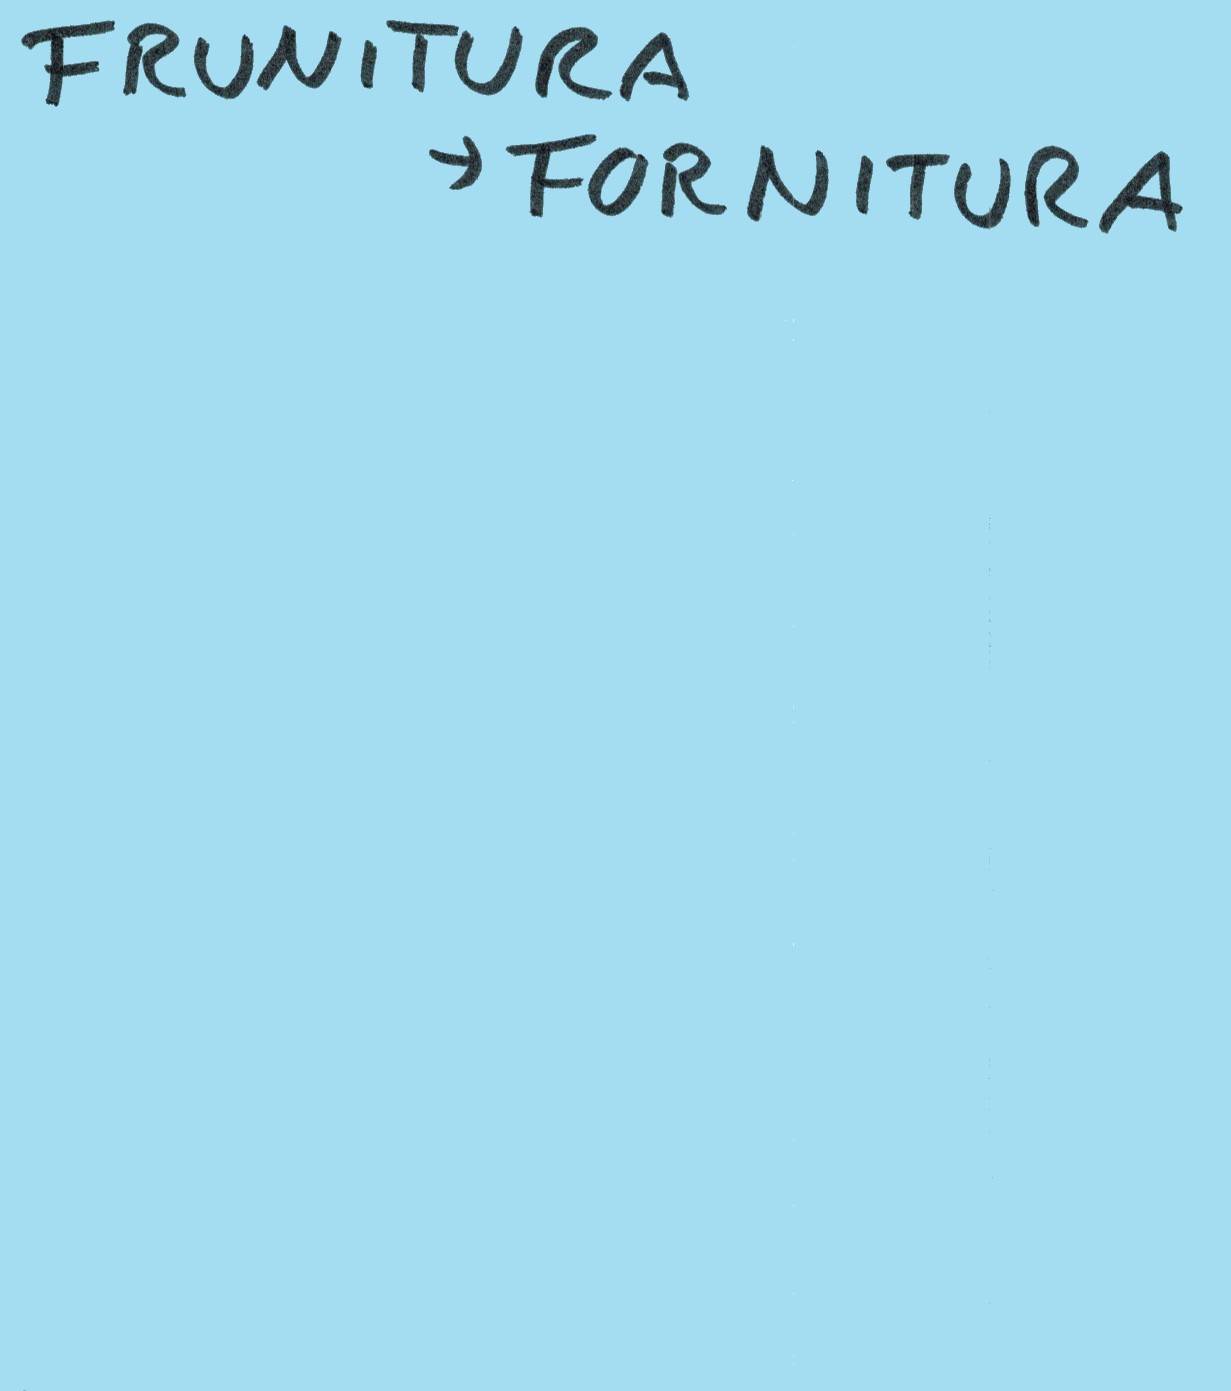 FRUNITURA
→ FORNITURA